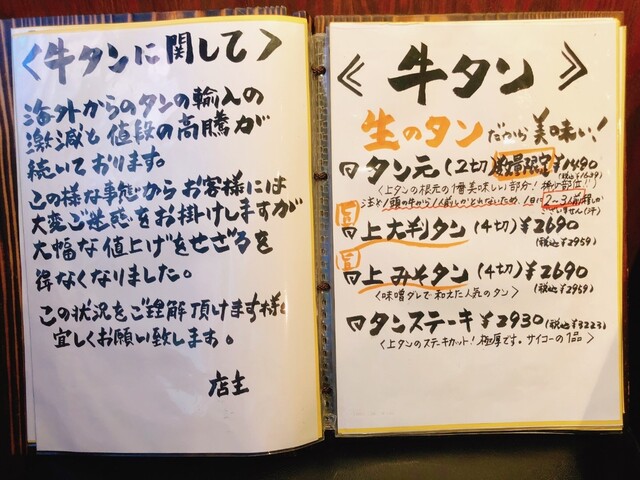 〈牛タンに関して〉
海外からのタンの輸入の
激減と値段の高騰が
続いております。
この様な事態からお客様には
大変ご迷惑をお掛けしますが
大幅な値上げをせざるを
得なくなりました。
この状況をご理解頂けます様
宜しくお願い致します。
店主
《牛タン》
生のタンだから美味い!
タン元(2切)数量限定¥1490
(税込¥1639)
〈上タンの根元の1番美味しい部分!希少部位!!〉
注)1頭の牛から1人前しかとれないため、1日に2〜3人前
上大判タン(4切)¥2690
(税込¥2959)
上みそタン(4切)¥2690
(税込¥2959)
〈味噌ダレで和えた人気のタン〉
タンステーキ¥2930(税込¥3223)
〈上タンのステーキカット!極厚です。サイコーの1品〉